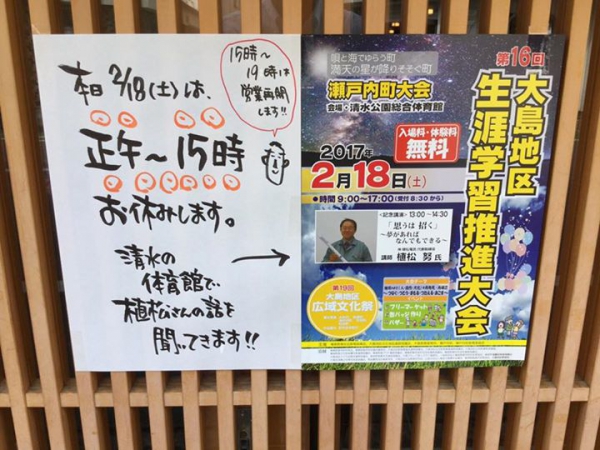 本日2/18(土)は、
正午～15時
お休みします。
清水の
体育館で
植松さんの話を
聞いてきます!!
15時～
19時は
営業再開
します!!
唄と海でゆらう町
満天の星が降りそそぐ町
瀬戸内町大会
会場・清水公園総合体育館
入場料・体験料
無料
2017年
2月18日(土)
●時間 9:00～17:00(受付 8:30から)
<記念講演> 13:00～14:30
「思うは 招く」
～夢があれば
なんでもできる～
講師 植松 努 氏
第19回
大島地区
広域文化祭
フリーマーケット
缶バッジ作り
バザー
第16回
大島地区
生涯学習推進大会